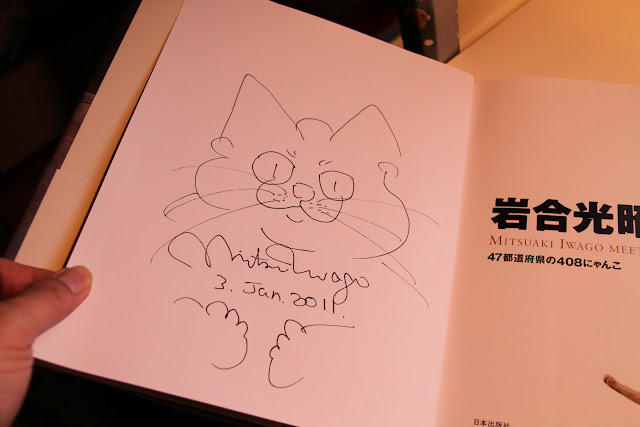 Mitsu Iwago
3. Jan. 2011.
岩合光昭
MITSUAKI IWAGO MEET
47都道府県の408にゃんこ
日本出版社